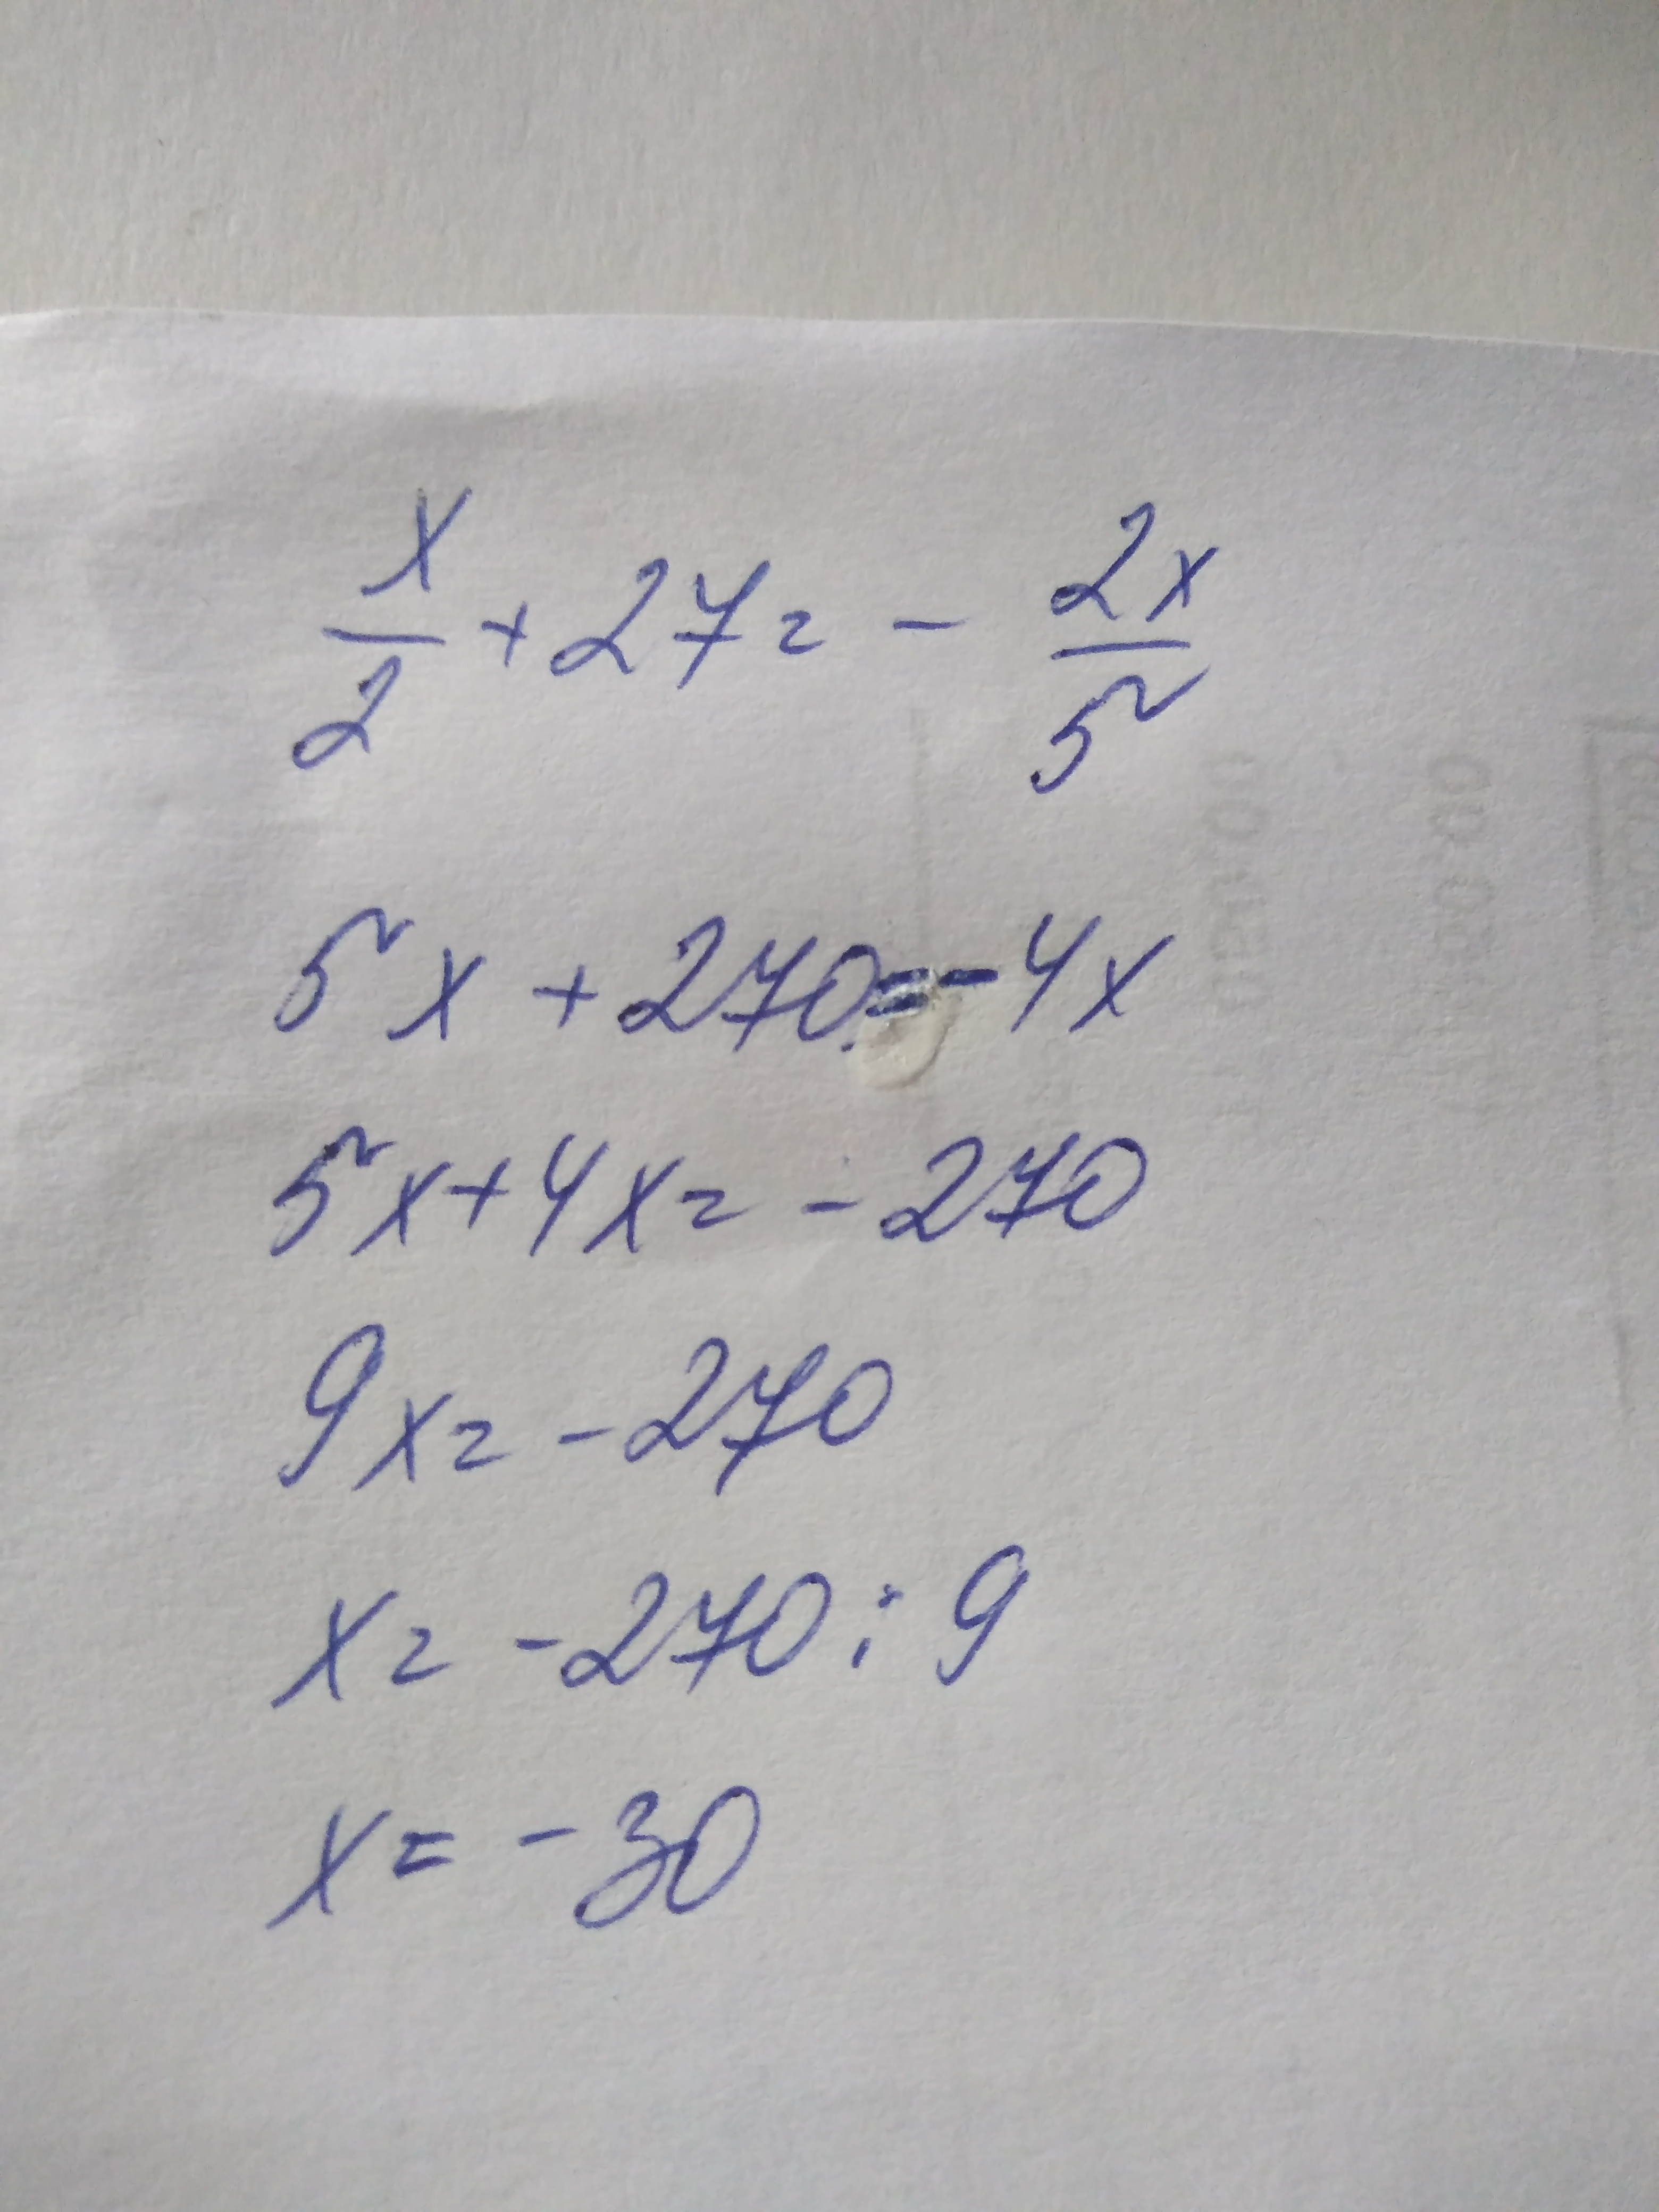 x/2 + 27 = - 2x/5
5x + 270 = -4x
5x + 4x = -270
9x = -270
x = -270 : 9
x = -30